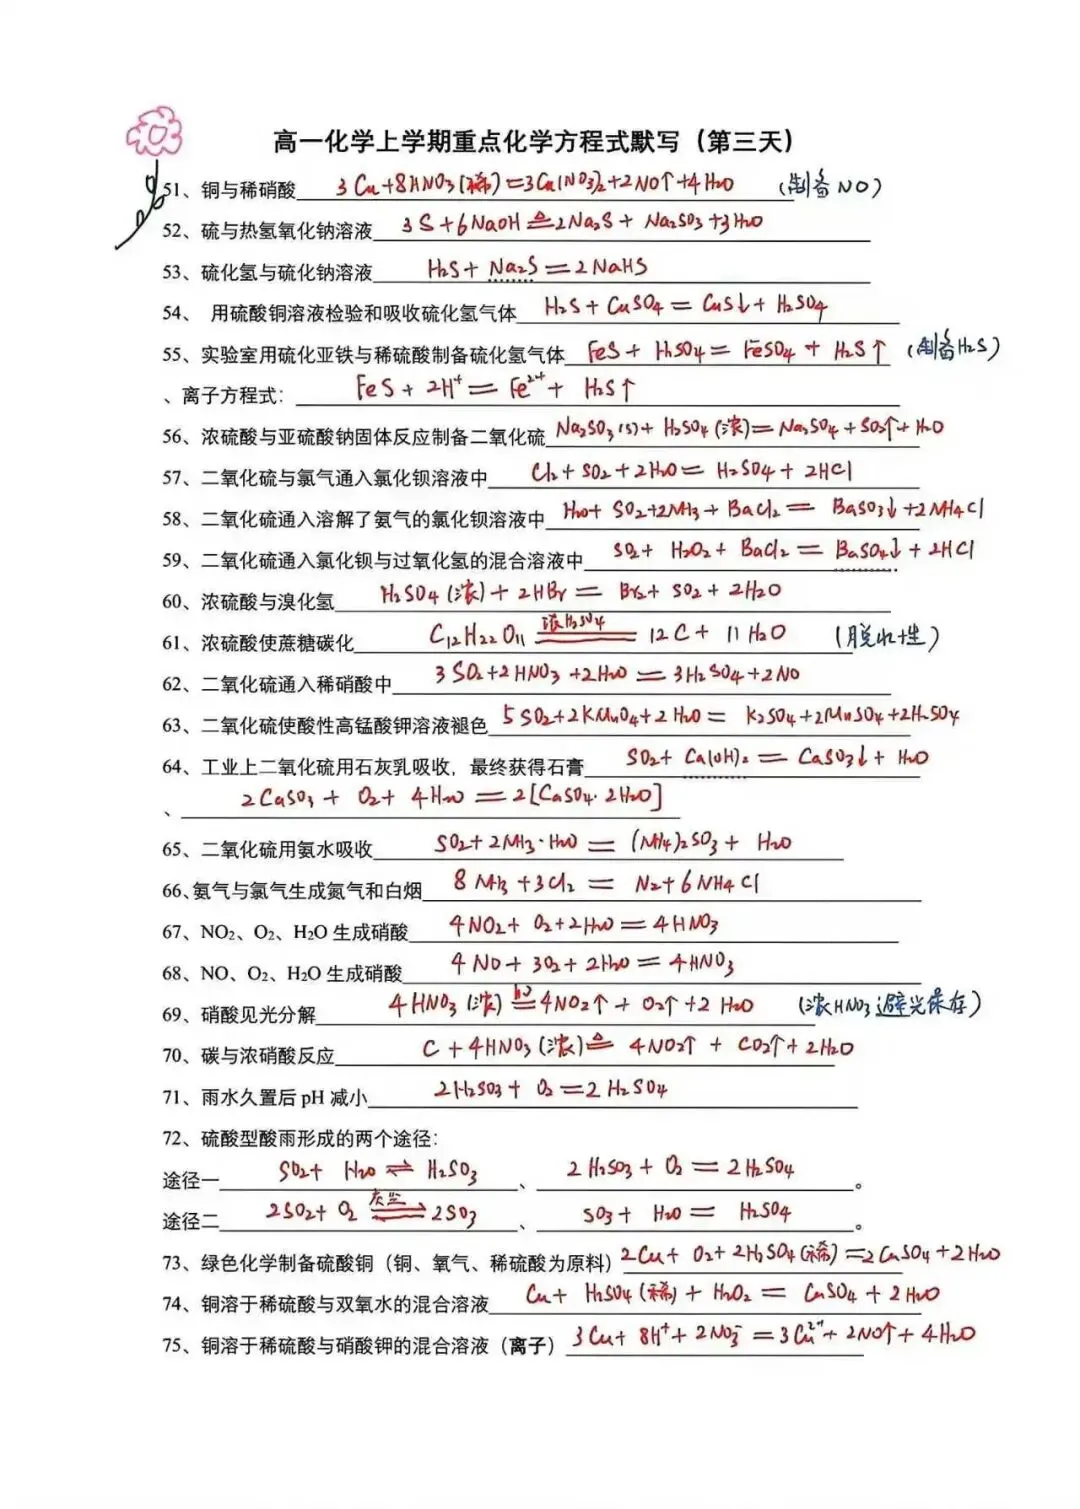 高一化学上学期重点化学方程式默写（第三天）
51、铜与稀硝酸 3Cu+8HNO₃(稀)=3Cu(NO₃)₂+2NO↑+4H₂O （制备NO）
52、硫与热氢氧化钠溶液 3S+6NaOH ≜ 2Na₂S+Na₂SO₃+3H₂O
53、硫化氢与硫化钠溶液 H₂S+Na₂S=2NaHS
54、用硫酸铜溶液检验和吸收硫化氢气体 H₂S+CuSO₄=CuS↓+H₂SO₄
55、实验室用硫化亚铁与稀硫酸制备硫化氢气体 FeS+H₂SO₄=FeSO₄+H₂S↑ （制备H₂S）
、离子方程式： FeS+2H⁺=Fe²⁺+H₂S↑
56、浓硫酸与亚硫酸钠固体反应制备二氧化硫 Na₂SO₃(s)+H₂SO₄(浓)=Na₂SO₄+SO₂↑+H₂O
57、二氧化硫与氯气通入氯化钡溶液中 Cl₂+SO₂+2H₂O=H₂SO₄+2HCl
58、二氧化硫通入溶解了氨气的氯化钡溶液中 H₂O+SO₂+2NH₃+BaCl₂=BaSO₃↓+2NH₄Cl
59、二氧化硫通入氯化钡与过氧化氢的混合溶液中 SO₂+H₂O₂+BaCl₂=BaSO₄↓+2HCl
60、浓硫酸与溴化氢 H₂SO₄(浓)+2HBr=Br₂+SO₂+2H₂O
61、浓硫酸使蔗糖碳化 C₁₂H₂₂O₁₁ 浓H₂SO₄ = 12C+11H₂O （脱水性）
62、二氧化硫通入稀硝酸中 3SO₂+2HNO₃+2H₂O=3H₂SO₄+2NO
63、二氧化硫使酸性高锰酸钾溶液褪色 5SO₂+2KMnO₄+2H₂O=K₂SO₄+2MnSO₄+2H₂SO₄
64、工业上二氧化硫用石灰乳吸收，最终获得石膏 SO₂+Ca(OH)₂=CaSO₃↓+H₂O
、 2CaSO₃+O₂+4H₂O=2[CaSO₄·2H₂O]
65、二氧化硫用氨水吸收 SO₂+2NH₃·H₂O=(NH₄)₂SO₃+H₂O
66、氨气与氯气生成氮气和白烟 8NH₃+3Cl₂=N₂+6NH₄Cl
67、NO₂、O₂、H₂O 生成硝酸 4NO₂+O₂+2H₂O=4HNO₃
68、NO、O₂、H₂O 生成硝酸 4NO+3O₂+2H₂O=4HNO₃
69、硝酸见光分解 4HNO₃(浓) hν = 4NO₂↑+O₂↑+2H₂O （浓HNO₃避光保存）
70、碳与浓硝酸反应 C+4HNO₃(浓) ≜ 4NO₂↑+CO₂↑+2H₂O
71、雨水久置后 pH 减小 2H₂SO₃+O₂=2H₂SO₄
72、硫酸型酸雨形成的两个途径：
途径一 SO₂+H₂O⇌H₂SO₃ 、 2H₂SO₃+O₂=2H₂SO₄ 。
途径二 2SO₂+O₂ 灰尘 ⇌ 2SO₃ 、 SO₃+H₂O=H₂SO₄ 。
73、绿色化学制备硫酸铜（铜、氧气、稀硫酸为原料） 2Cu+O₂+2H₂SO₄(稀)=2CuSO₄+2H₂O
74、铜溶于稀硫酸与双氧水的混合溶液 Cu+H₂SO₄(稀)+H₂O₂=CuSO₄+2H₂O
75、铜溶于稀硫酸与硝酸钾的混合溶液（离子） 3Cu+8H⁺+2NO₃⁻=3Cu²⁺+2NO↑+4H₂O